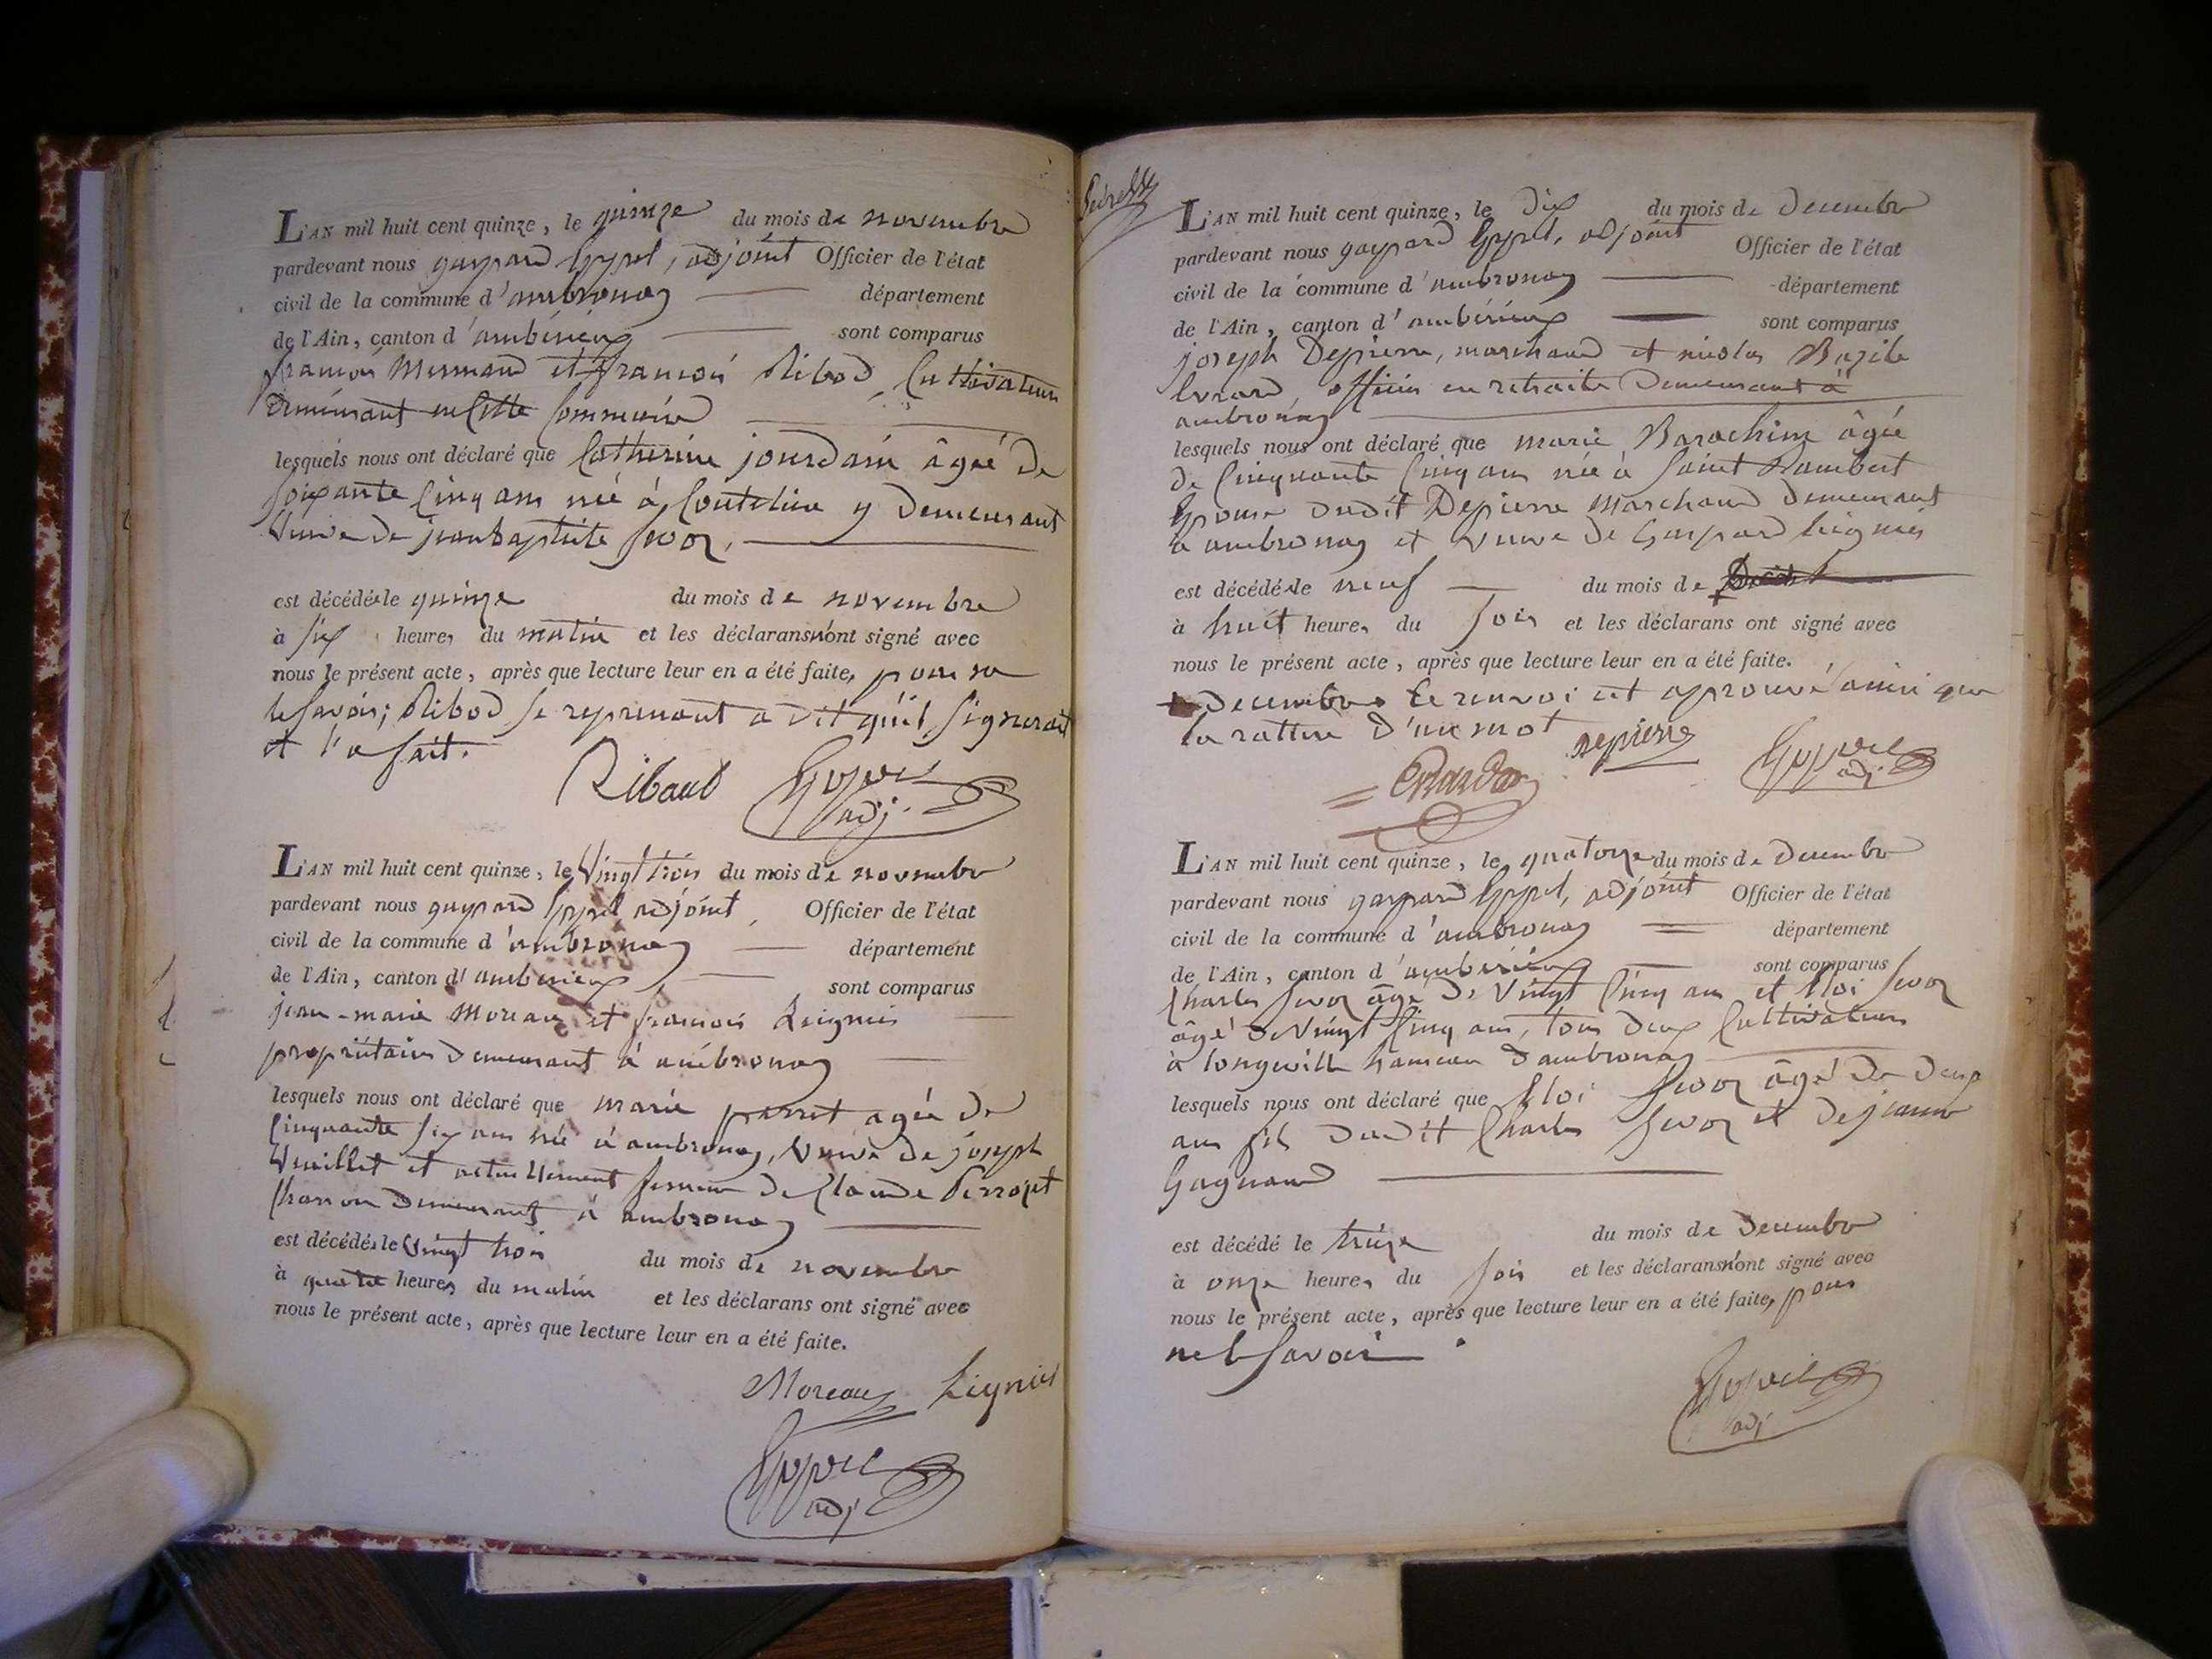 L'AN mil huit cent quinze, le quinze du mois de novembre
pardevant nous gaspard adjoint Officier de l'état
civil de la commune d'ambronay département
de l'Ain, canton d'ambérieux sont comparus
françois Mermand et françois Ribod, Cultivateurs
Demeurant en Cette Commune
lesquels nous ont déclaré que Catherine jourdain âgée De
soixante Cinq ans née à Coutelieu y Demeurant
Veuve De jean baptiste
est décédée le quinze du mois de novembre
à six heures du matin et les déclarans n'ont signé avec
nous le présent acte, après que lecture leur en a été faite, pour ne
le savoir; Ribod se reprenant a dit qu'il signerait
et l'a fait.
Ribaud
adj.
L'AN mil huit cent quinze, le Vingt trois du mois de novembre
pardevant nous gaspard adjoint, Officier de l'état
civil de la commune d'ambronay département
de l'Ain, canton d'ambérieux sont comparus
jean-marie Moreau et françois Leignier
propriétaires demeurant à ambronay
lesquels nous ont déclaré que marie perret agée De
Cinquante six ans née à ambronay, veuve De joseph
Vuillet et actuellement femme De Claude
Charron Demeurant à ambronay
est décédée le Vingt trois du mois de novembre
à quatre heures du matin et les déclarans ont signé avec
nous le présent acte, après que lecture leur en a été faite.
Moreau Lignier
adj
L'AN mil huit cent quinze, le Dix du mois de Decembre
pardevant nous gaspard adjoint Officier de l'état
civil de la commune d'ambronay département
de l'Ain, canton d'ambérieux sont comparus
joseph Depierre, marchand et nicolas Bazile
officier en retraite Demeurant à
ambronay
lesquels nous ont déclaré que marie Barachin âgée
de Cinquante Cinq ans née à Saint Rambert
Epouse Dudit Depierre Marchand Demeurant
à ambronay et veuve De Gaspard Leignier
est décédée le neuf du mois de
à huit heures du soir et les déclarans ont signé avec
nous le présent acte, après que lecture leur en a été faite.
Decembre Le renvoi est approuvé ainsi que
la rature D'un mot
depierre
adj.
L'AN mil huit cent quinze, le quatorze du mois de Decembre
pardevant nous gaspard adjoint Officier de l'état
civil de la commune d'ambronay département
de l'Ain, canton d'ambérieux sont comparus
Charles âgé De Vingt Cinq ans et Eloi
âgé De Vingt Cinq ans, tous deux Cultivateurs
à longeville hameau D'ambronay
lesquels nous ont déclaré que Eloi âgé De Deux
ans fils Dudit Charles et De jeanne
Gagnand
est décédé le treize du mois de Decembre
à onze heures du soir et les déclarans n'ont signé avec
nous le présent acte, après que lecture leur en a été faite, pour
ne le savoir.
adj